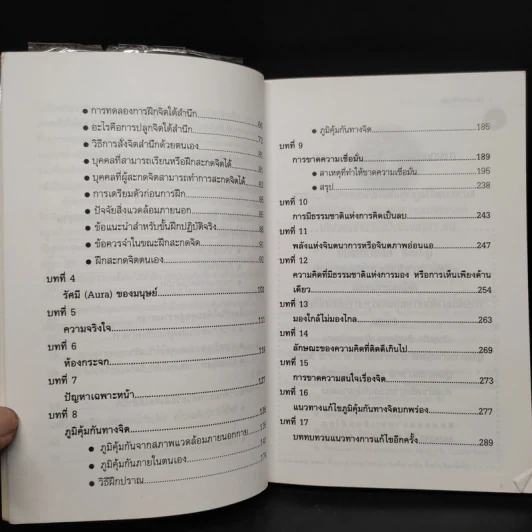 ● การทดลองการฝึกจิตใต้สำนึก
● อะไรคือการปลูกจิตใต้สำนึก
● วิธีการสั่งจิตสำนึกด้วยตนเอง
● บุคคลที่สามารถเรียนหรือฝึกสะกดจิตได้
● บุคคลที่ผู้สะกดจิตสามารถทำการสะกดจิตได้
● การเตรียมตัวก่อนการฝึก
● ปัจจัยสิ่งแวดล้อมภายนอก
● ข้อแนะนำสำหรับขั้นฝึกปฏิบัติจริง
● ข้อควรจำในขณะฝึกสะกดจิต
● ฝึกสะกดจิตตนเอง
บทที่ 4
รัศมี (Aura) ของมนุษย์
บทที่ 5
ความจริงใจ
บทที่ 6
ห้องกระจก
บทที่ 7
ปัญหาเฉพาะหน้า
บทที่ 8
ภูมิคุ้มกันทางจิต
● ภูมิคุ้มกันจากสภาพแวดล้อมภายนอกกาย
● ภูมิคุ้มกันภายในตนเอง
● วิธีฝึกปราณ
● ภูมิคุ้มกันทางจิต 185
บทที่ 9
การขาดความเชื่อมั่น 189
● สาเหตุที่ทำให้ขาดความเชื่อมั่น 195
● สรุป 238
บทที่ 10
การมีธรรมชาติแห่งการคิดเป็นลบ 243
บทที่ 11
พลังแห่งจินตนาการหรือจินตภาพอ่อนแอ 247
บทที่ 12
ความคิดที่มีธรรมชาติแห่งการมอง หรือการเห็นเพียงด้าน
เดียว 254
บทที่ 13
มองใกล้ไม่มองไกล 263
บทที่ 14
ลักษณะของความคิดที่ติดดีเกินไป 269
บทที่ 15
การขาดความสนใจเรื่องจิต 273
บทที่ 16
แนวทางแก้ไขภูมิคุ้มกันทางจิตบกพร่อง 277
บทที่ 17
บททบทวนแนวทางการแก้ไขอีกครั้ง 289